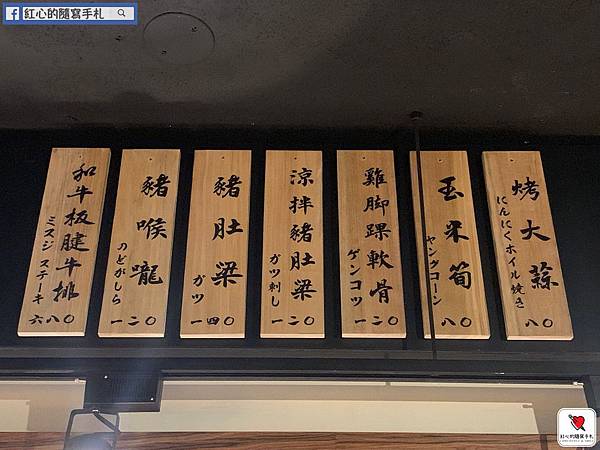 紅心的隨寫手札
烤大蒜
にんにくホイル焼き
八〇
玉米筍
ヤングコーン
八〇
雞腳踝軟骨
ゲンコツ
一二〇
涼拌豬肚梁
ガツ刺し
一二〇
豬肚梁
ガツ
一四〇
豬喉嚨
のどがしら
一二〇
和牛板腱牛排
ミスジステーキ
六八〇
紅心的隨寫手札